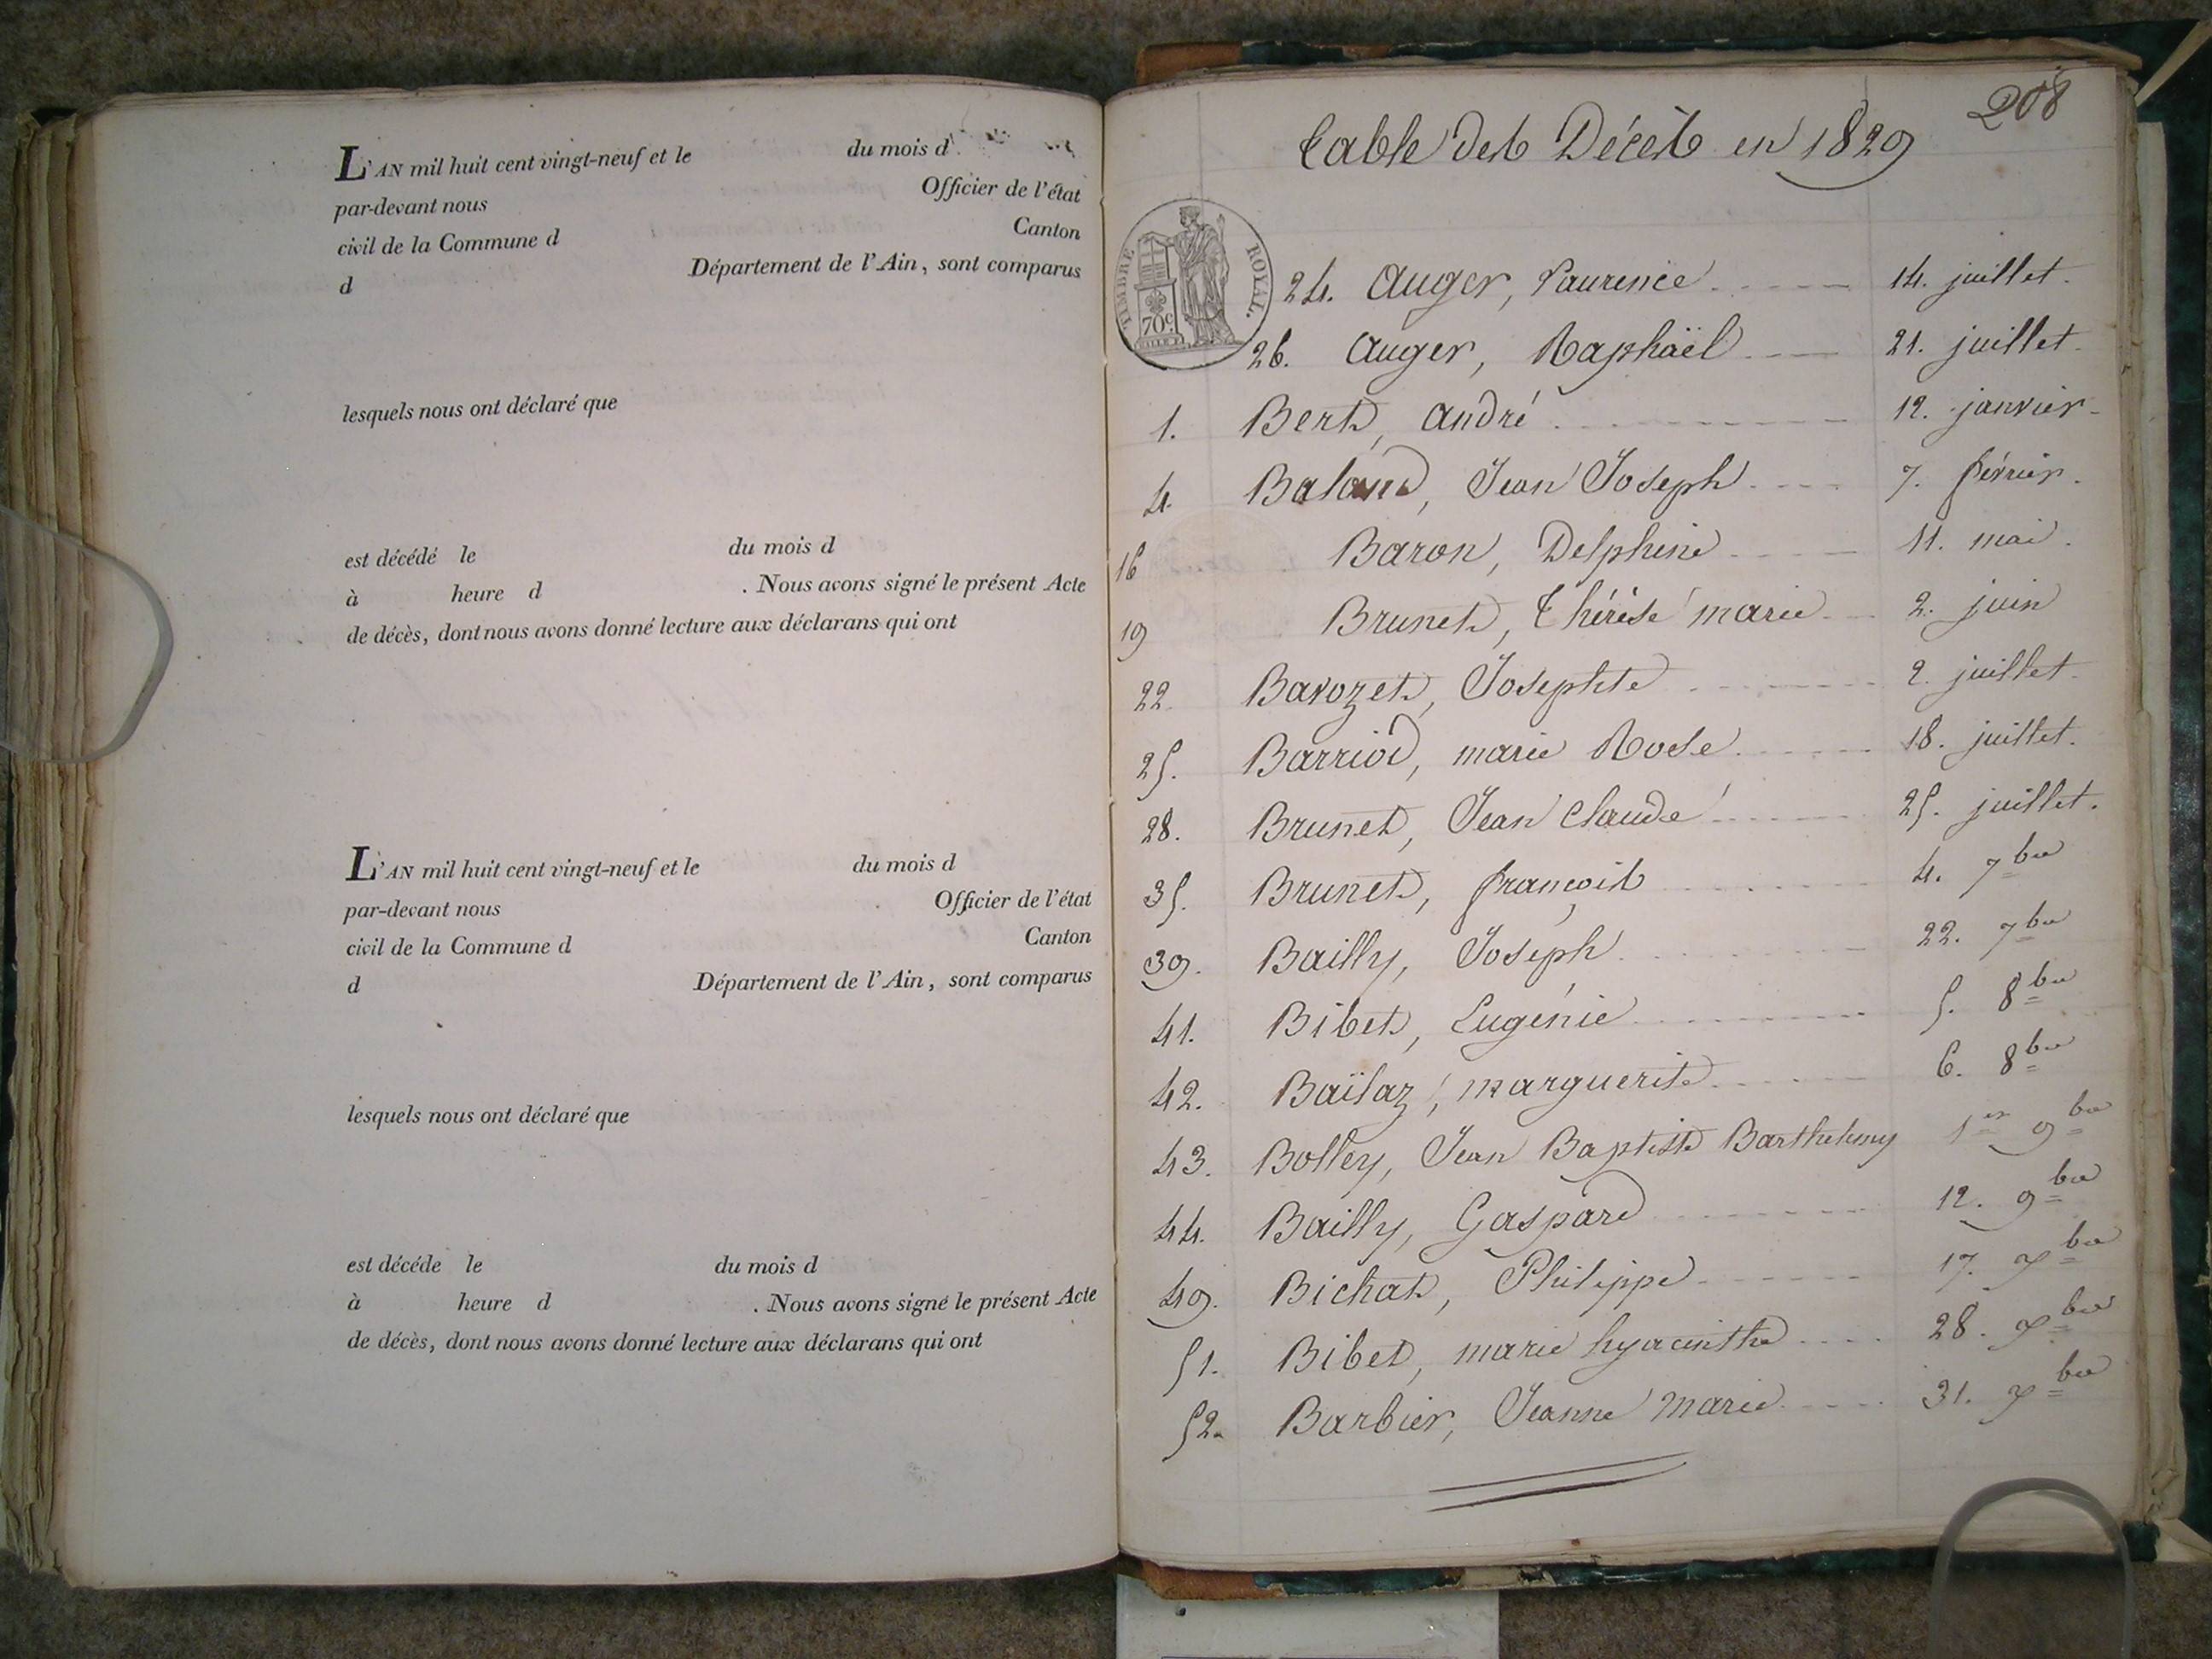 L'AN mil huit cent vingt-neuf et le du mois d
par-devant nous Officier de l'état
civil de la Commune d Canton
d Département de l'Ain, sont comparus
lesquels nous ont déclaré que
est décédé le du mois d
à heure d . Nous avons signé le présent Acte
de décès, dont nous avons donné lecture aux déclarans qui ont
L'AN mil huit cent vingt-neuf et le du mois d
par-devant nous Officier de l'état
civil de la Commune d Canton
d Département de l'Ain, sont comparus
lesquels nous ont déclaré que
est décédé le du mois d
à heure d . Nous avons signé le présent Acte
de décès, dont nous avons donné lecture aux déclarans qui ont
208
Table des Décès en 1829
TIMBRE ROYAL.
70c.
24. Auger, Laurence 14. juillet.
26. Auger, Raphaël 21. juillet.
1. Bert, André 12. janvier.
4. Baland, Jean Joseph 7. février.
16 Baron, Delphine 11. mai.
19 Brunet, Thérèse marie 2. juin
22. Bavozet, Josephte 2. juillet.
25. Barriod, marie Rose 18. juillet.
28. Brunet, Jean Claude 25. juillet.
35. Brunet, françois 4. 7bre
39. Bailly, Joseph 22. 7bre
41. Bibet, Eugénie 5. 8bre
42. Baïlaz, marguerite 6. 8bre
43. Bolley, Jean Baptiste Barthelemy 1er 9bre
44. Bailly, Gaspard 12. 9bre
49. Bichat, Philippe 17. Xbre
51. Bibet, marie hyacinthe 28. Xbre
52. Barbier, Jeanne Marie 31. Xbre